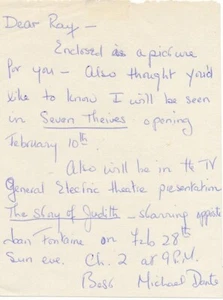 Dear Ray —
Enclosed is a picture
for you — Also thought you'd
like to know I will be seen
in Seven Thieves opening
February 10th
Also will be in the TV
General Electric theatre presentation
The Story of Judith — starring opposite
Joan Fontaine on Feb 28th
Sun eve. Ch. 2 at 9 P.M.
Best Michael Dante